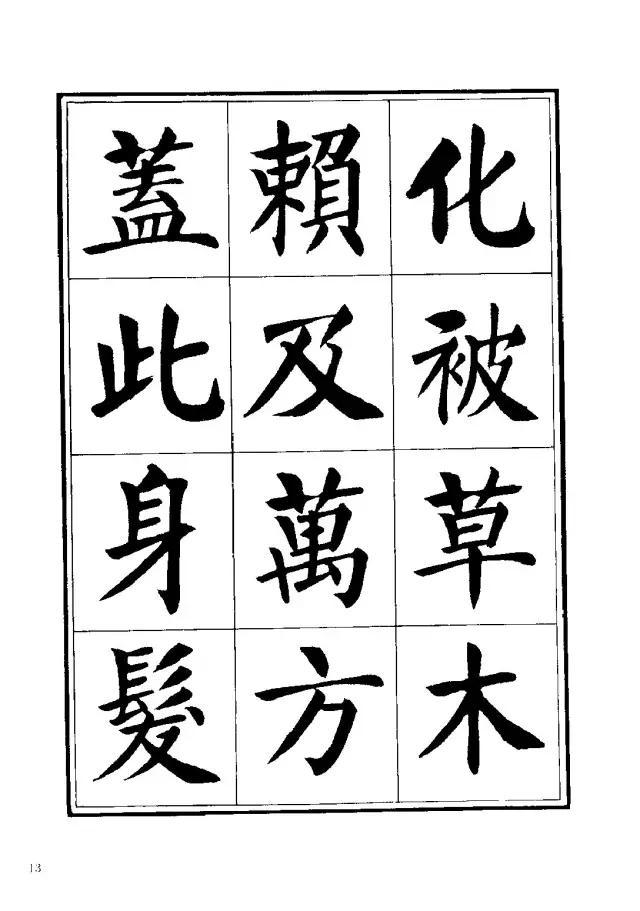 化被草木
賴及萬方
蓋此身髮
13